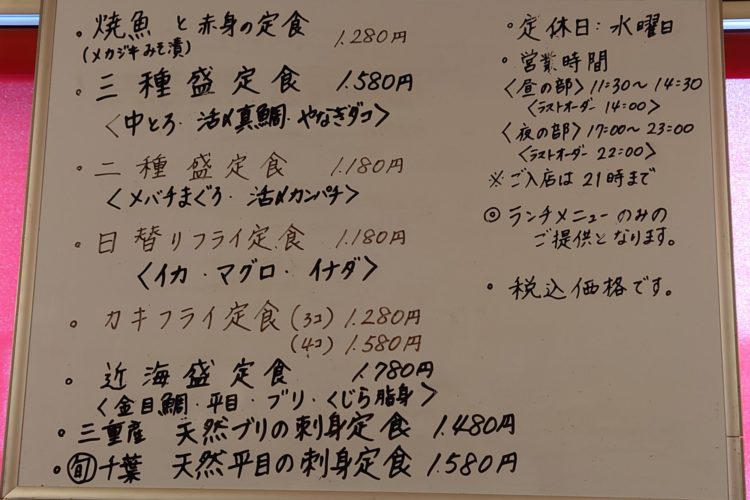 ・焼魚と赤身の定食 1.280円
(メカジキみそ漬)
・三種盛定食 1.580円
〈中とろ・活〆真鯛・やなぎダコ〉
・二種盛定食 1.180円
〈メバチまぐろ・活〆カンパチ〉
・日替りフライ定食 1.180円
〈イカ・マグロ・イナダ〉
・カキフライ定食(3コ) 1.280円
(4コ) 1.580円
・近海盛定食 1.780円
〈金目鯛・平目・ブリ・くじら脂身〉
・三重産 天然ブリの刺身定食 1.480円
・旬千葉 天然平目の刺身定食 1.580円
・定休日:水曜日
・営業時間
〈昼の部〉11:30〜14:30
〈ラストオーダー 14:00〉
〈夜の部〉17:00〜23:00
〈ラストオーダー 22:00〉
※ご入店は21時まで
◎ランチメニューのみの
ご提供となります。
・税込価格です。